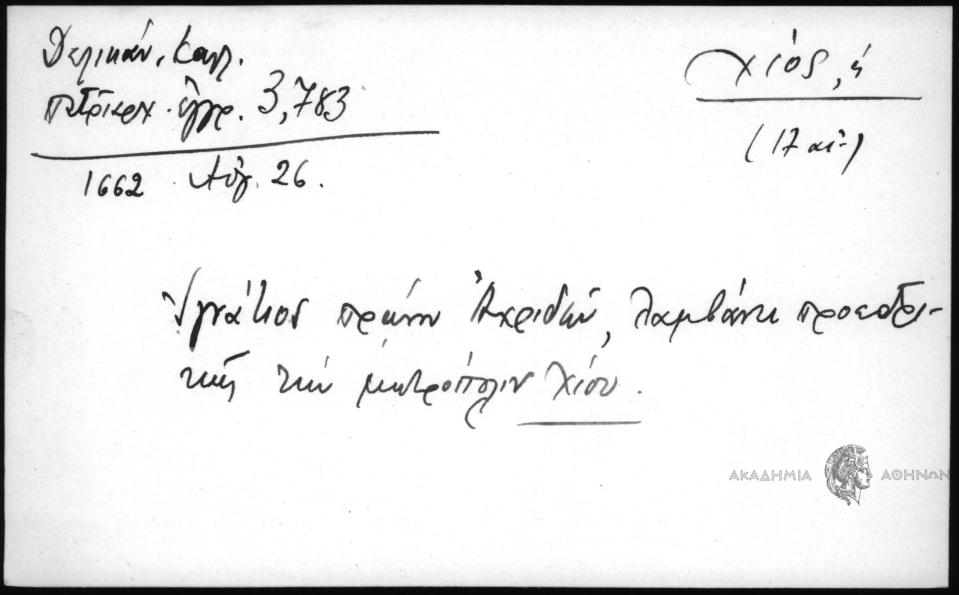 Δελικάν. Καλλ.
πατριαρχ. ἔγγρ. 3,783
1662 Αὐγ. 26.
Χίος, ἡ
(17 αἰ.)
Ἰγνάτιος πρώην Ἀχριδῶν, λαμβάνει προεδρι-
κῶς τὴν μητρόπολιν Χίου.
ΑΚΑΔΗΜΙΑ ΑΘΗΝΩΝ